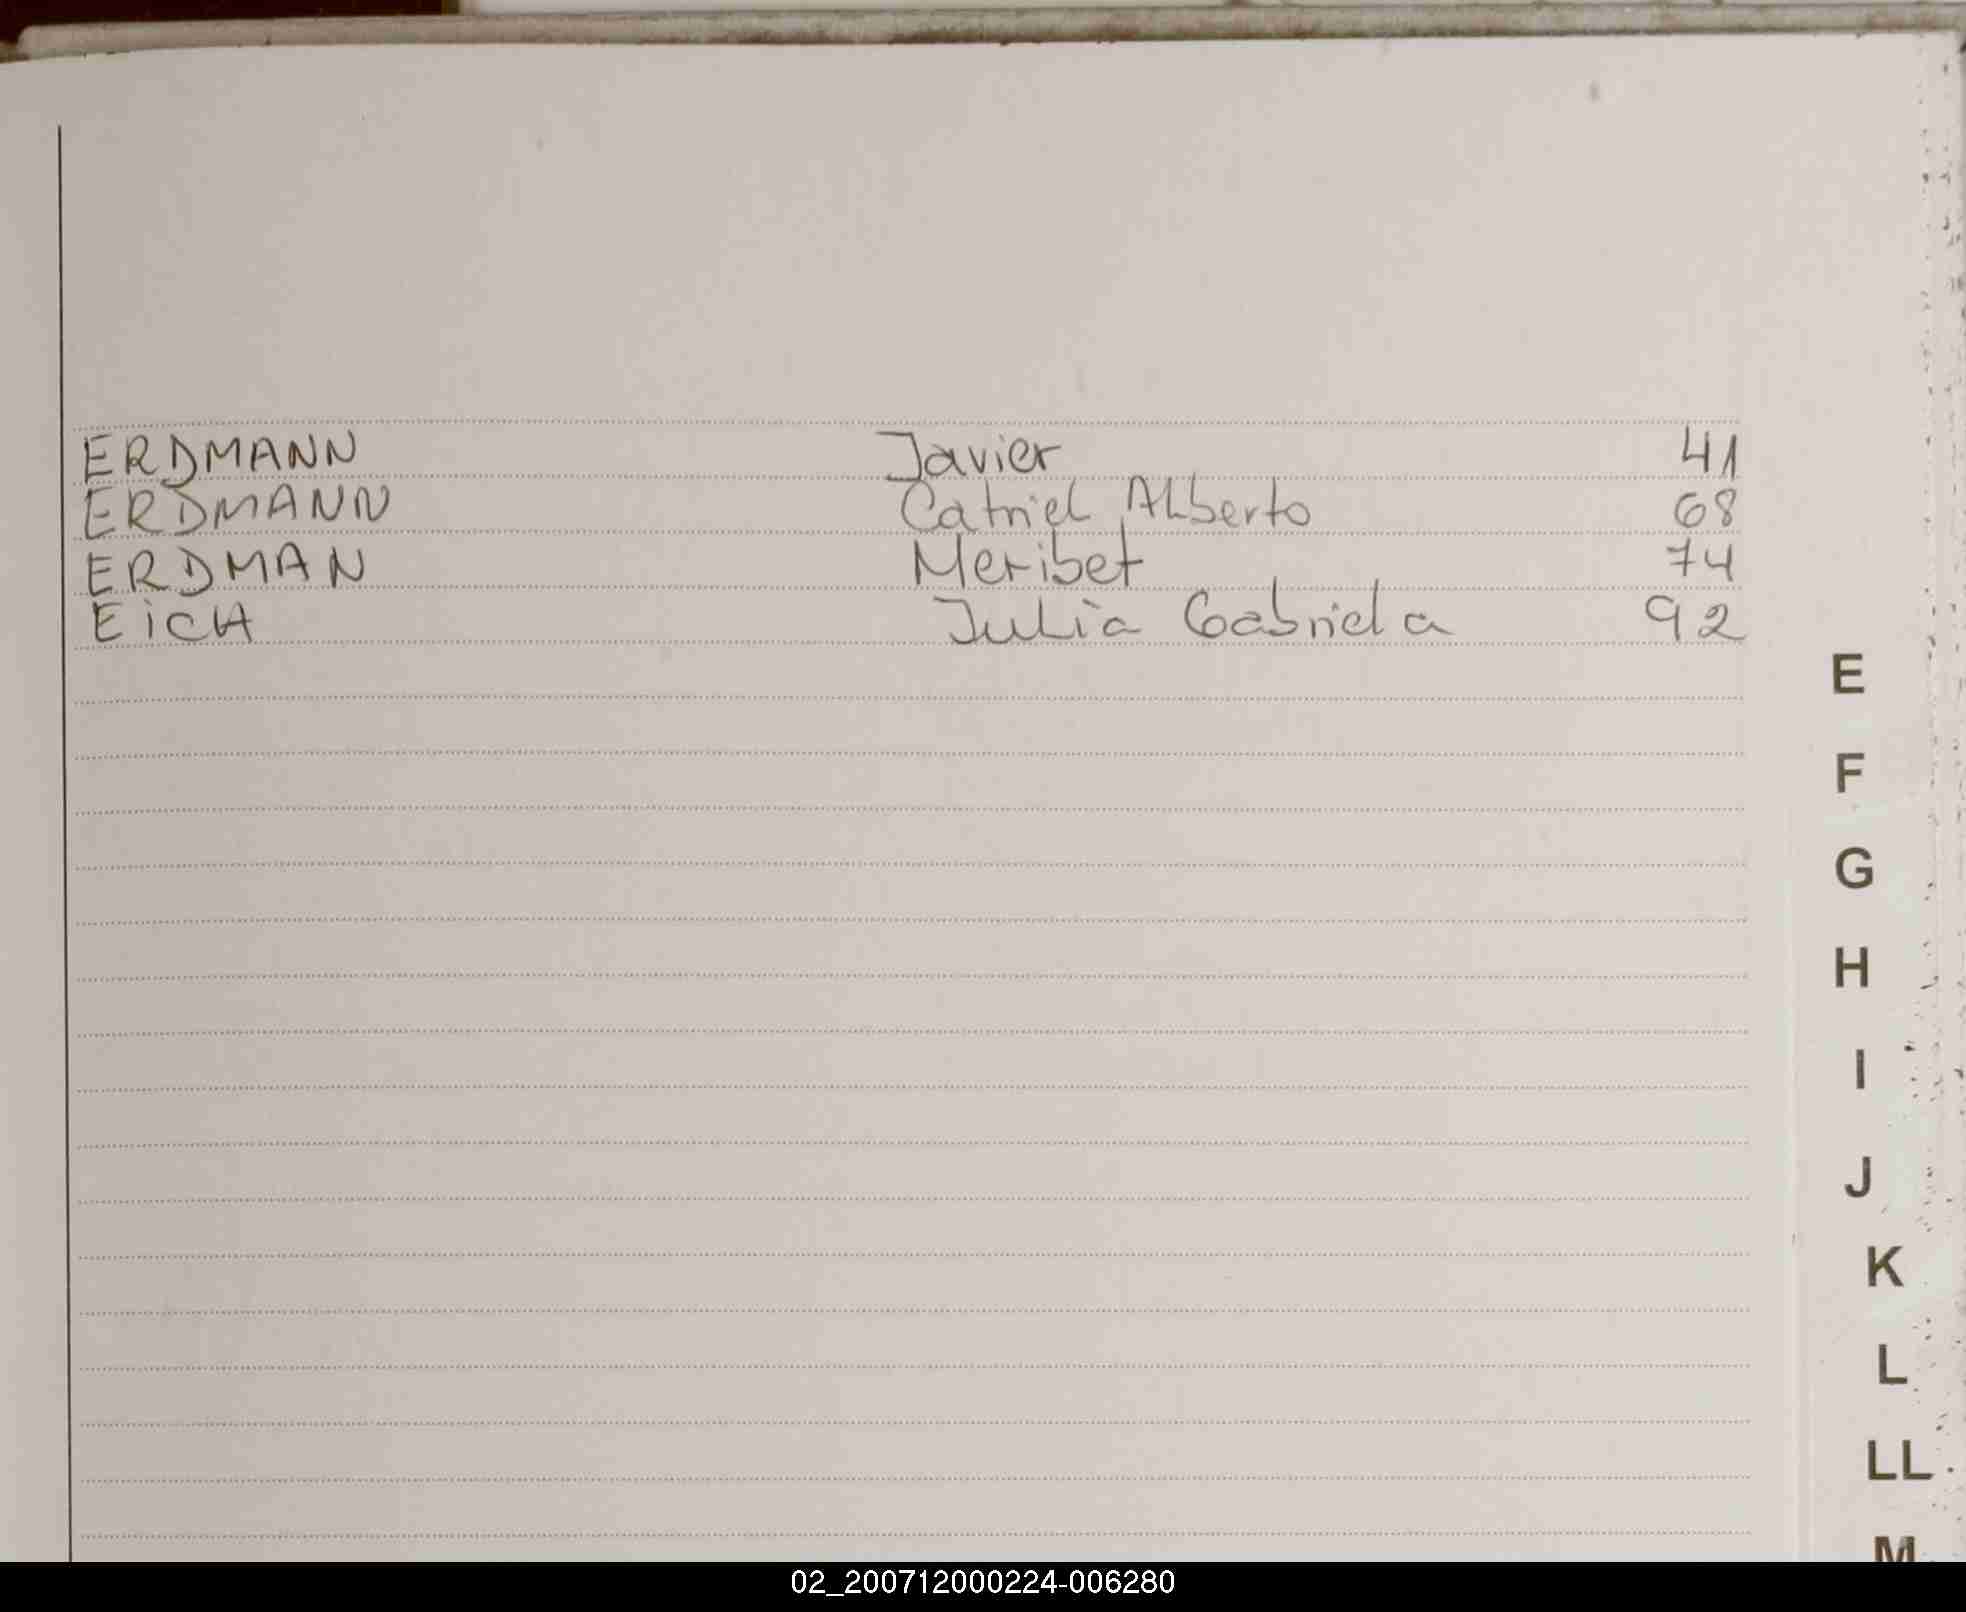 ERDMANN Javier 41
ERDMANN Catriel Alberto 68
ERDMAN Meribet 74
EicH Julia Gabriela 92
E
F
G
H
I
J
K
L
LL
M
02_200712000224-006280